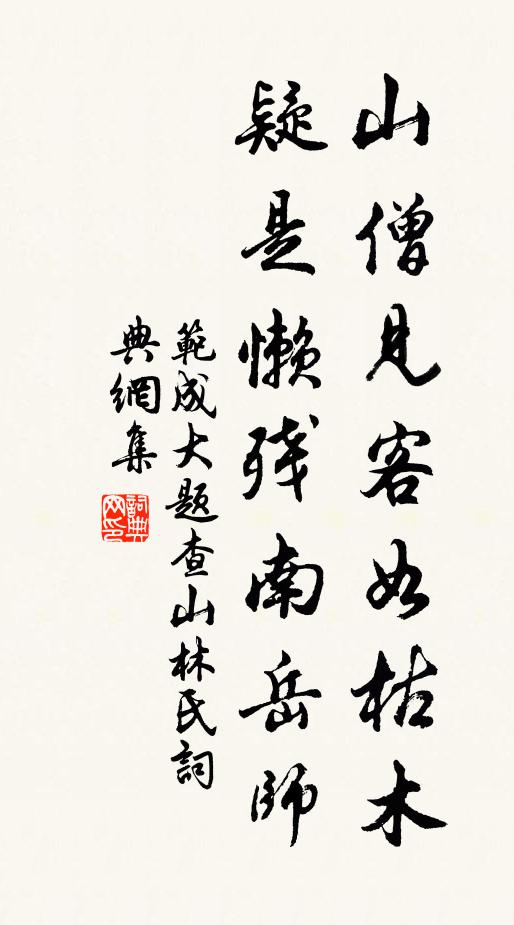 山僧見客如枯木
疑是懶残南岳師
範成大題查山林氏詞
典網集
詞典
网印